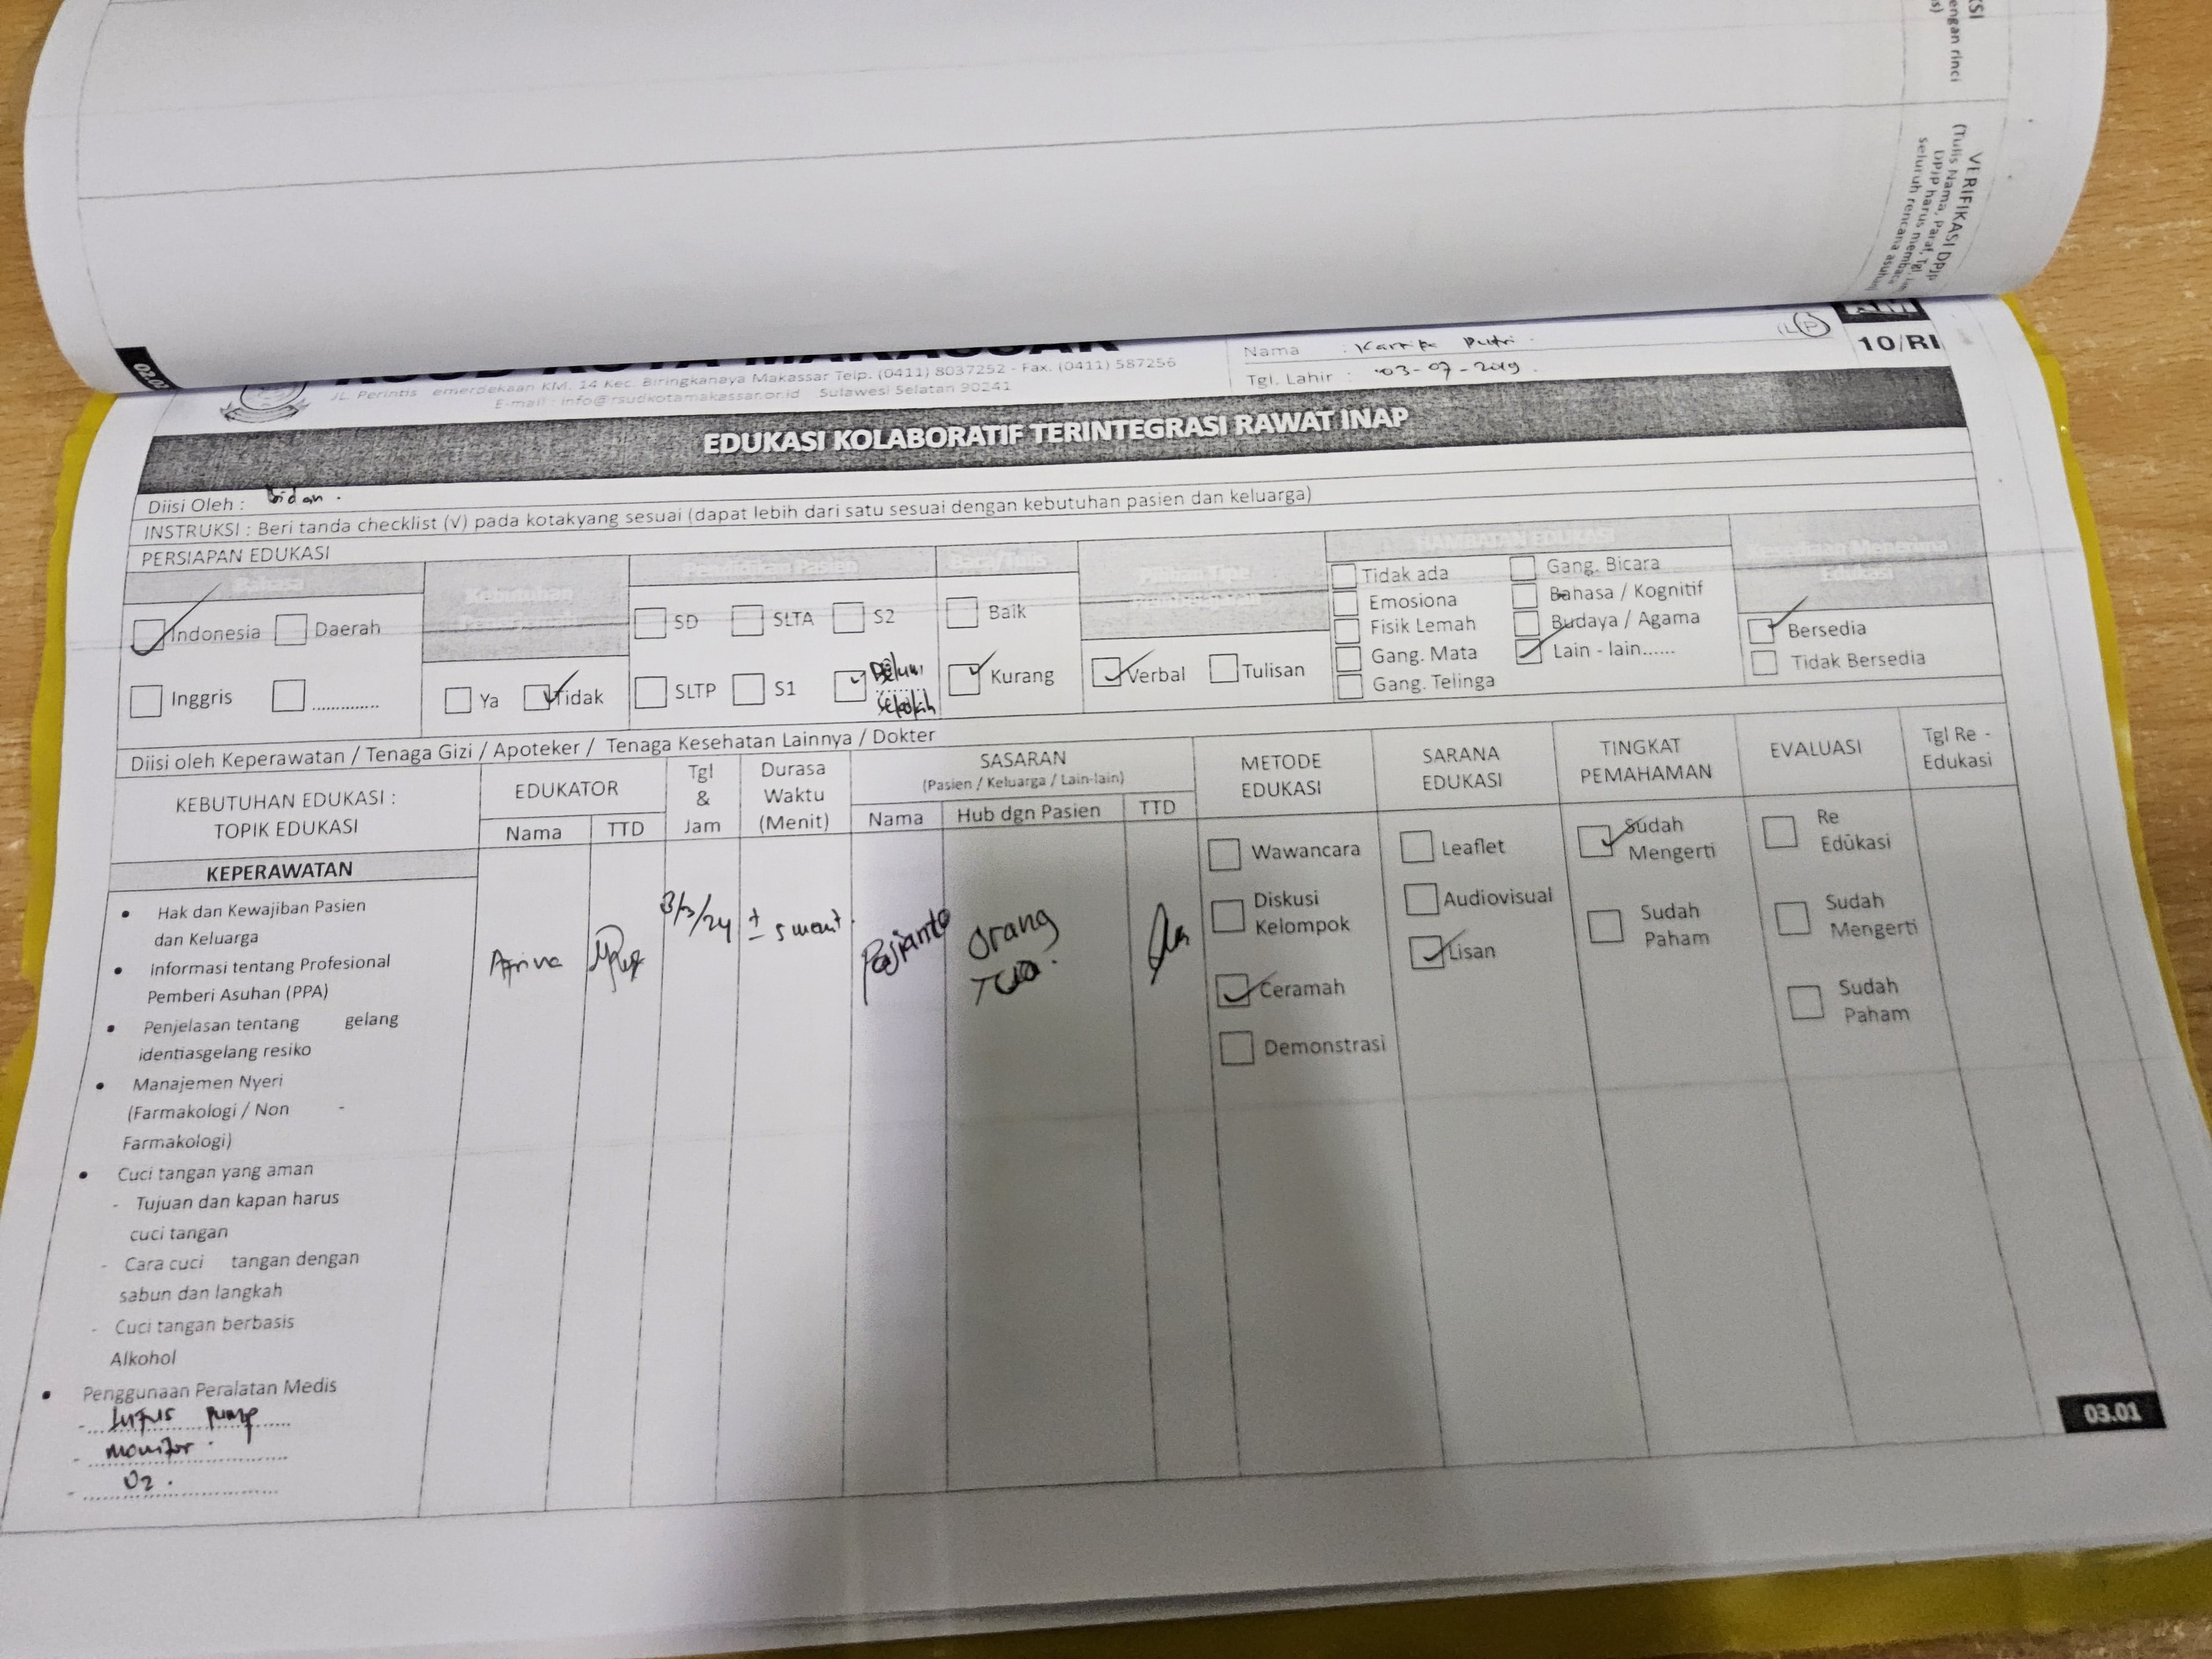 VERIFIKASI DPJP
(Tulis Nama, Paraf, Tgl,
DPJP harus membaca
seluruh rencana asuhan
engan rinci
02.0
RSUD KOTA MAKASSAR
JL. Perintis emerdekaan KM. 14 Kec. Biringkanaya Makassar Telp. (0411) 8037252 - Fax. (0411) 587256
E-mail : info@rsudkotamakassar.or.id Sulawesi Selatan 90241
Nama : Kartika Putri (L P)
Tgl. Lahir : 03-07-2019
RM
10/RI
EDUKASI KOLABORATIF TERINTEGRASI RAWAT INAP
Diisi Oleh : Bidan .
INSTRUKSI : Beri tanda checklist (√) pada kotakyang sesuai (dapat lebih dari satu sesuai dengan kebutuhan pasien dan keluarga)
PERSIAPAN EDUKASI
Bahasa
Indonesia Daerah
Inggris ..............
Kebutuhan
Ya Tidak
Pendidikan Pasien
SD SLTA S2
SLTP S1 Belum
sekolah
Baca/Tulis
Baik
Kurang
Pilihan Tipe
Verbal Tulisan
HAMBATAN EDUKASI
Tidak ada Gang. Bicara
Emosiona Bahasa / Kognitif
Fisik Lemah Budaya / Agama
Gang. Mata Lain - lain......
Gang. Telinga
Kesediaan Menerima
Edukasi
Bersedia
Tidak Bersedia
Diisi oleh Keperawatan / Tenaga Gizi / Apoteker / Tenaga Kesehatan Lainnya / Dokter
KEBUTUHAN EDUKASI :
TOPIK EDUKASI
EDUKATOR
Nama TTD
Tgl
&
Jam
Durasa
Waktu
(Menit)
SASARAN
(Pasien / Keluarga / Lain-lain)
Nama Hub dgn Pasien TTD
METODE
EDUKASI
SARANA
EDUKASI
TINGKAT
PEMAHAMAN
EVALUASI
Tgl Re -
Edukasi
KEPERAWATAN
• Hak dan Kewajiban Pasien
dan Keluarga
• Informasi tentang Profesional
Pemberi Asuhan (PPA)
• Penjelasan tentang gelang
identiasgelang resiko
• Manajemen Nyeri
(Farmakologi / Non -
Farmakologi)
• Cuci tangan yang aman
- Tujuan dan kapan harus
cuci tangan
- Cara cuci tangan dengan
sabun dan langkah
- Cuci tangan berbasis
Alkohol
• Penggunaan Peralatan Medis
- Infus pump
- monitor .
- O2 .
3/3/24
± 5 menit .
Orang
Tua .
Wawancara
Diskusi
Kelompok
Ceramah
Demonstrasi
Leaflet
Audiovisual
Lisan
Sudah
Mengerti
Sudah
Paham
Re
Edukasi
Sudah
Mengerti
Sudah
Paham
03.01